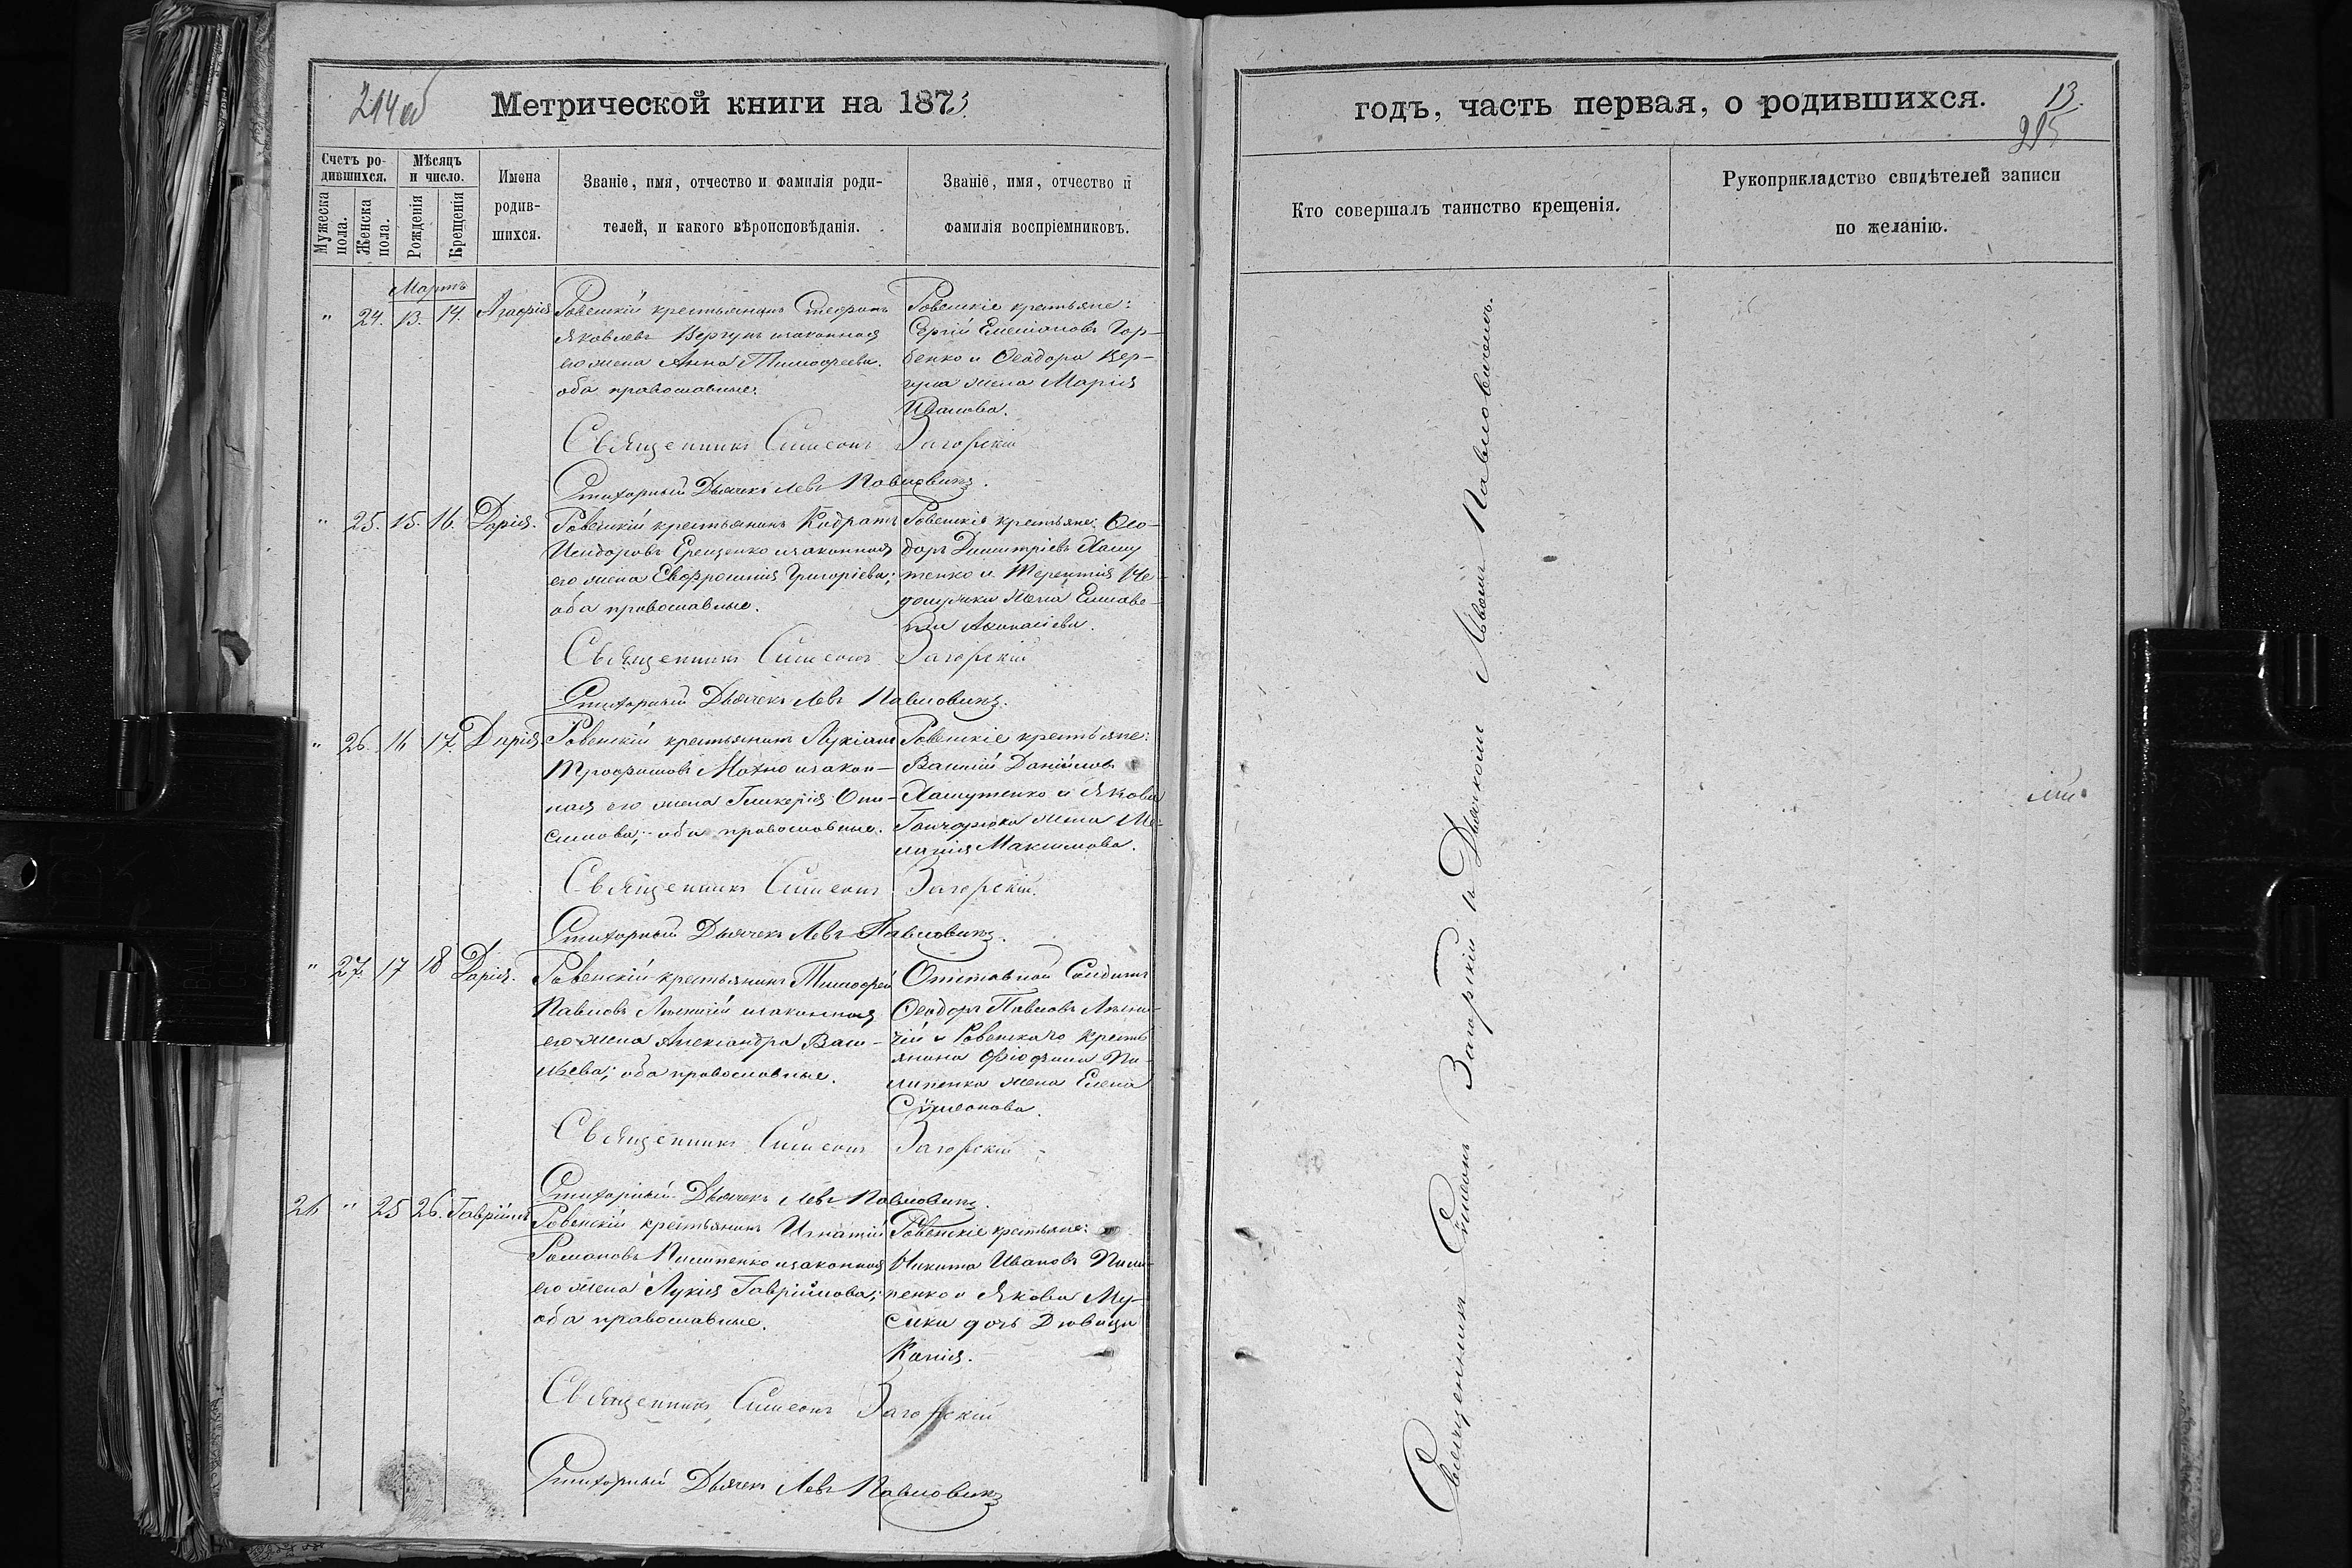 214об
Метрической книги на 1873
Счетъ родившихся.
Мужеска пола.
Женска пола.
Мѣсяцъ и число.
Рожденія
Крещенія
Имена родившихся.
Званіе, имя, отчество и фамилія родителей, и какого вѣроисповѣданія.
Званіе, имя, отчество и фамилія воспріемниковъ.
Мартъ
" 24. 13. 14. Агафія
Ровенскій крестьянинъ Стефанъ
Яковлевъ Вергунъ и законная
его жена Анна Тимофеева.
оба православные.
Ровенскіе крестьяне:
Сергій Емеліановъ Гор-
бенко и Ѳеодора Вер-
гуна жена Марія
Иванова.
Священникъ Симеонъ Загорскій
Стихарный Дьячекъ Левъ Павловичъ.
" 25. 15. 16. Дарія.
Ровенскій крестьянинъ Кодратъ
Исидоровъ Ерещенко и законная
его жена Евфросинія Григоріева;
оба православные.
Ровенскіе крестьяне: Ѳео-
доръ Димитріевъ Хаму
тенко и Терентія Не
жена Елисаве-
та Афанасіева.
Священникъ Симеонъ Загорскій
Стихарный Дьячекъ Левъ Павловичъ.
" 26. 16 17. Дарія.
Ровенскій крестьянинъ Лукіанъ
Трофимовъ Махно и закон-
ная его жена Гликерія Они-
симова; оба православные.
Ровенскіе крестьяне:
Василій Даніиловъ
Хамутенко и Якова
Гончарюка жена Ме-
ланія Максимова.
Священникъ Симеонъ Загорскій.
Стихарный Дьячекъ Левъ Павловичъ.
" 27. 17 18 Дарія.
Ровенскій крестьянинъ Тимофей
Павловъ Лѣсничій и законная
его жена Александра Васи-
льева; оба православные.
Отставной Солдатъ
Ѳеодоръ Павловъ Лѣсни-
чій и Ровенскаго кресть
янина Пи-
липенка жена Елена
Сѵмеонова.
Священникъ Симеонъ Загорскій
Стихарный Дьячекъ Левъ Павловичъ.
26 " 25 26. Гавріилъ
Ровенскій крестьянинъ Игнатій
Романовъ Пилипенко и законная
его жена Лукія Гавріилова;
оба православные.
Ровенскіе крестьяне:
Никита Ивановъ Пили-
пенко и Якова Му-
сика дочь Дѣвица
Ксенія.
Священникъ Симеонъ Загорскій
Стихарный Дьячекъ Левъ Павловичъ
годъ, часть первая, о родившихся.
13.
215
Кто совершалъ таинство крещенія.
Рукоприкладство свидѣтелей записи по желанію.
Священникъ Сѵмеонъ Загорскій съ Дьячкомъ Львомъ Павловичемъ.